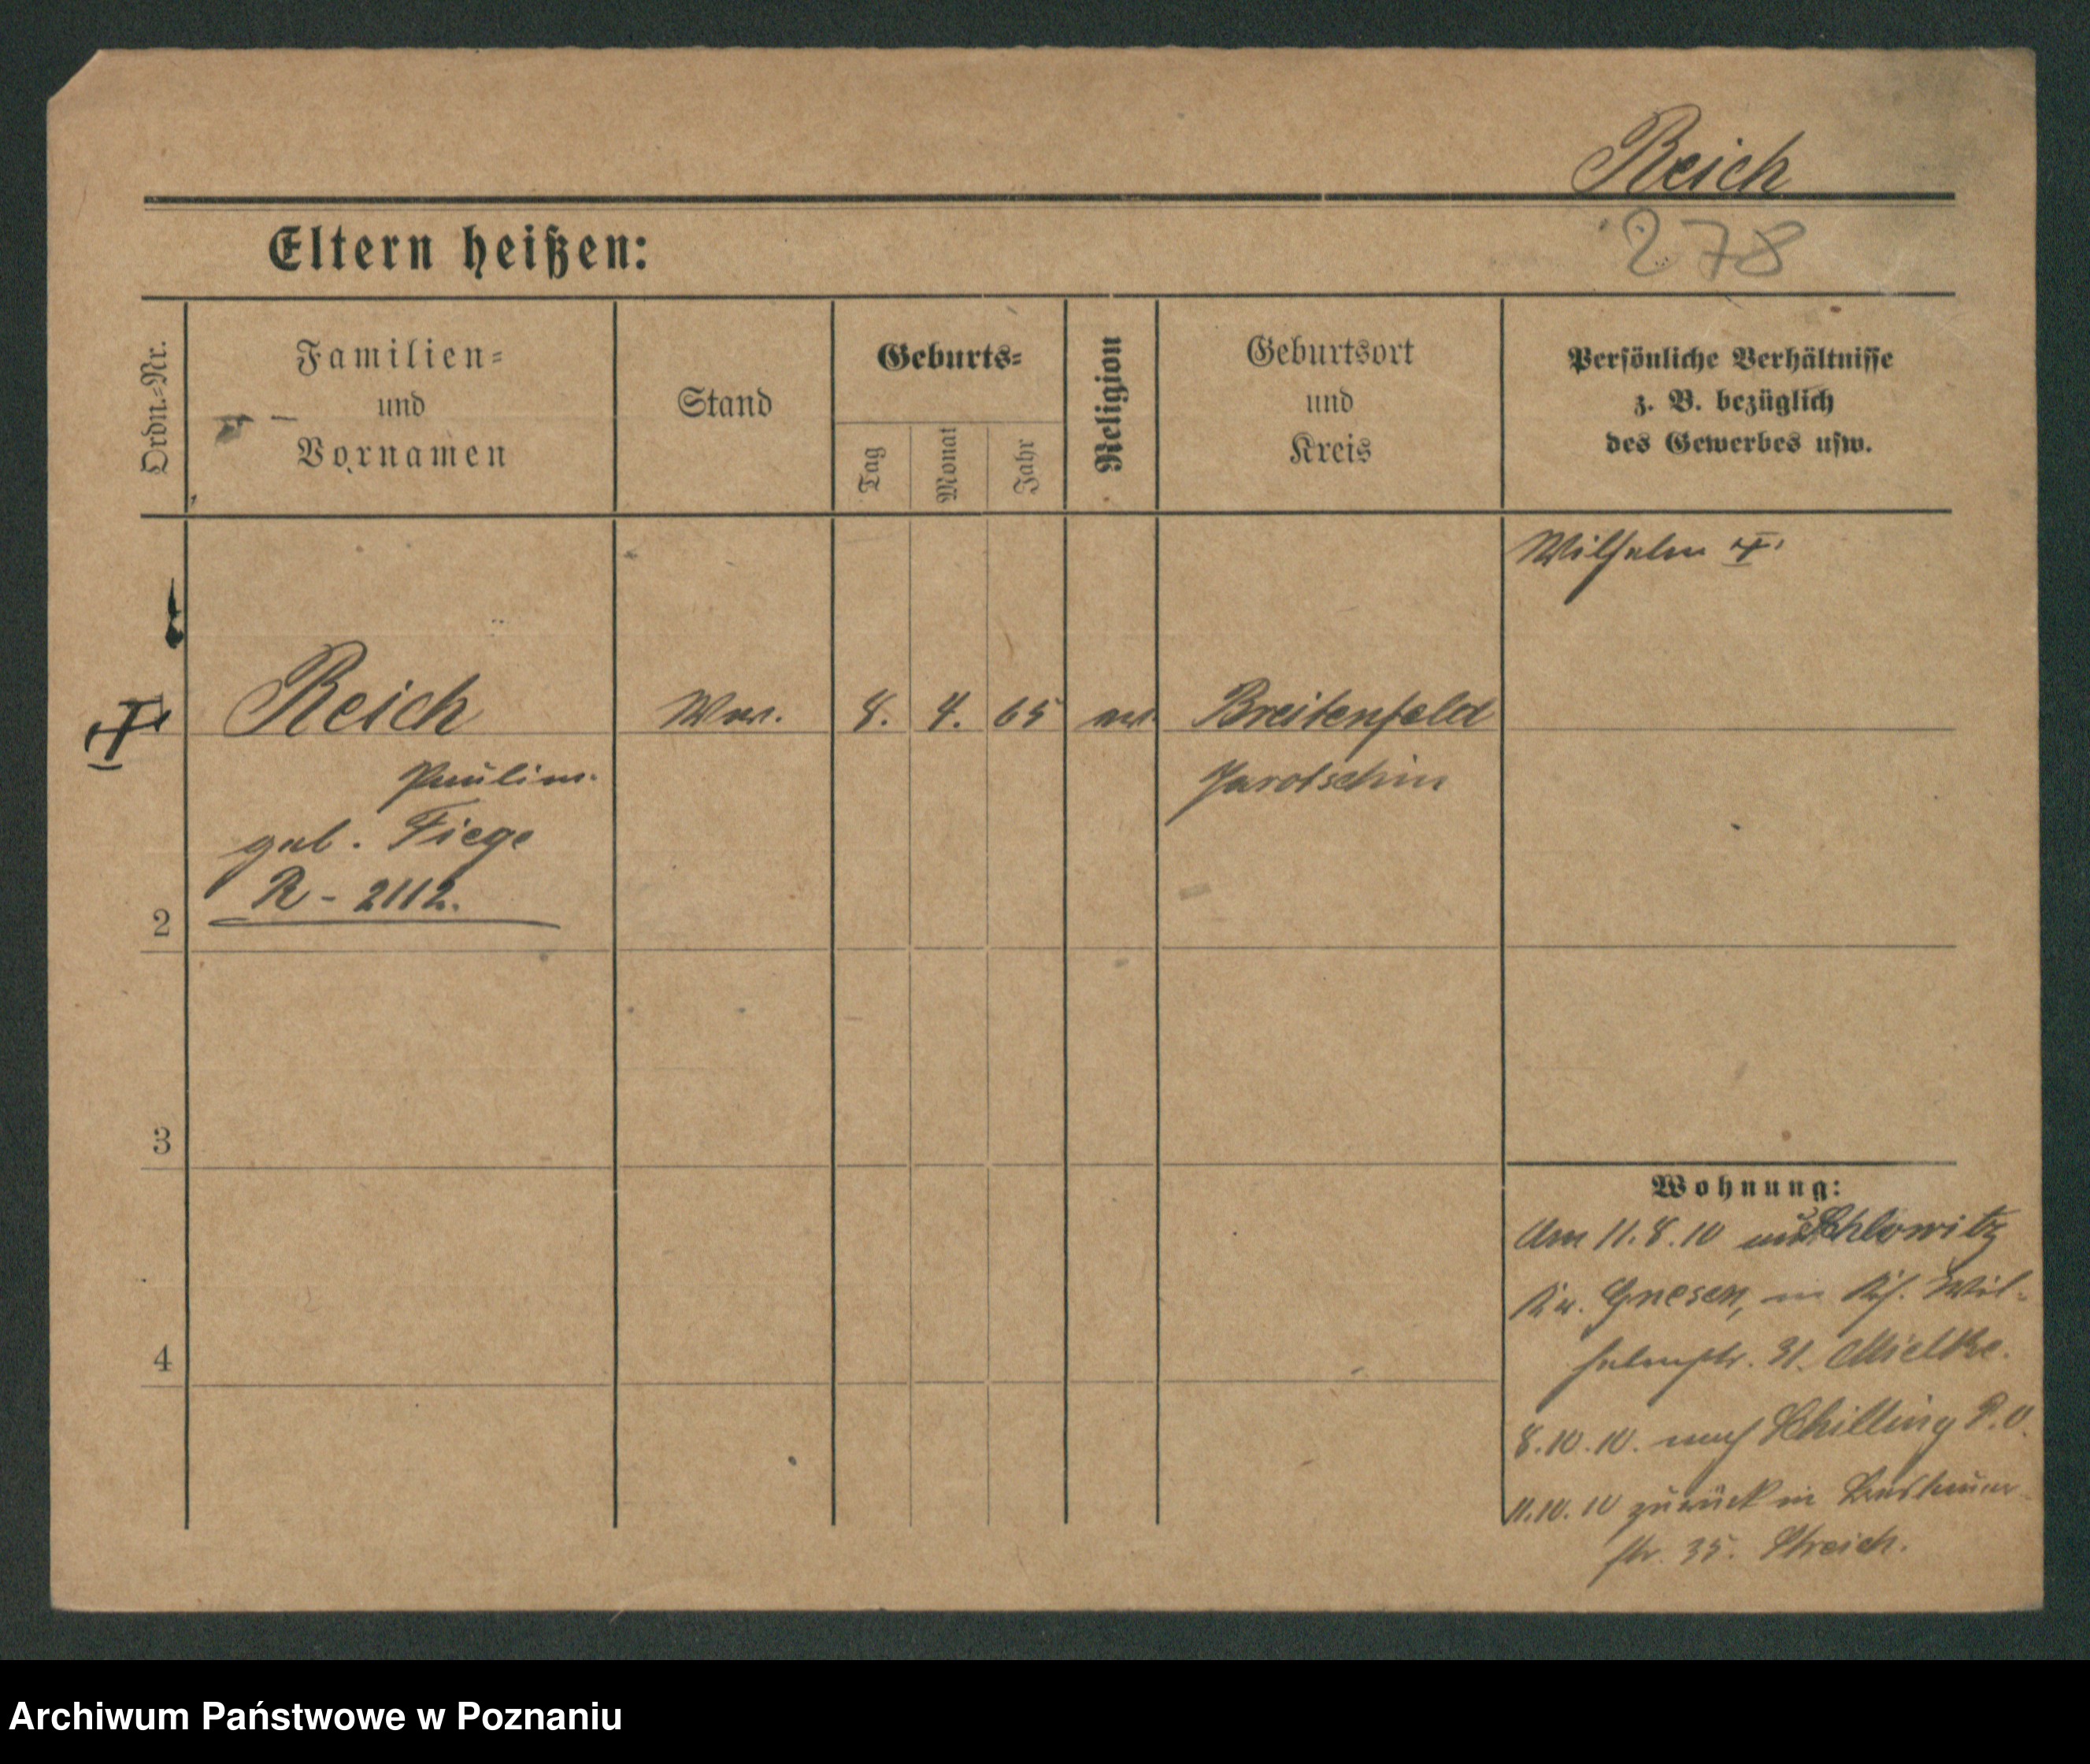 Reich
278
Eltern heißen:
Ordn.=Nr.
Familien=
und
Vornamen
Stand
Geburts=
Tag
Monat
Jahr
Religion
Geburtsort
und
Kreis
Persönliche Verhältnisse
z. B. bezüglich
des Gewerbes usw.
Wilhelm
Reich
Ww. 8. 4. 65 ev. Breitenfeld
Pauline
Jarotschin
geb. Fiege
R - 2112.
2
3
4
Wohnung:
Am 11.8.10 aus
Kr. Gnesen, in Kgl. Wil-
helmstr. 31. Mielke.
8.10.10. nach Schilling P.O.
11.10.10 zurück in
str. 35. Streich.
Archiwum Państwowe w Poznaniu